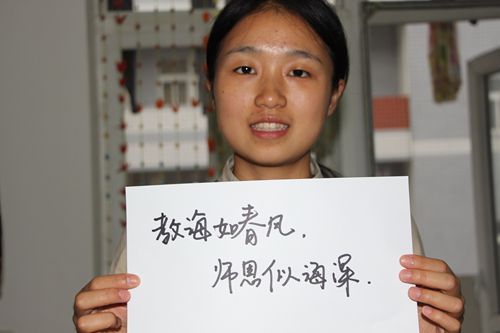 教海如春风.
师恩似海深.